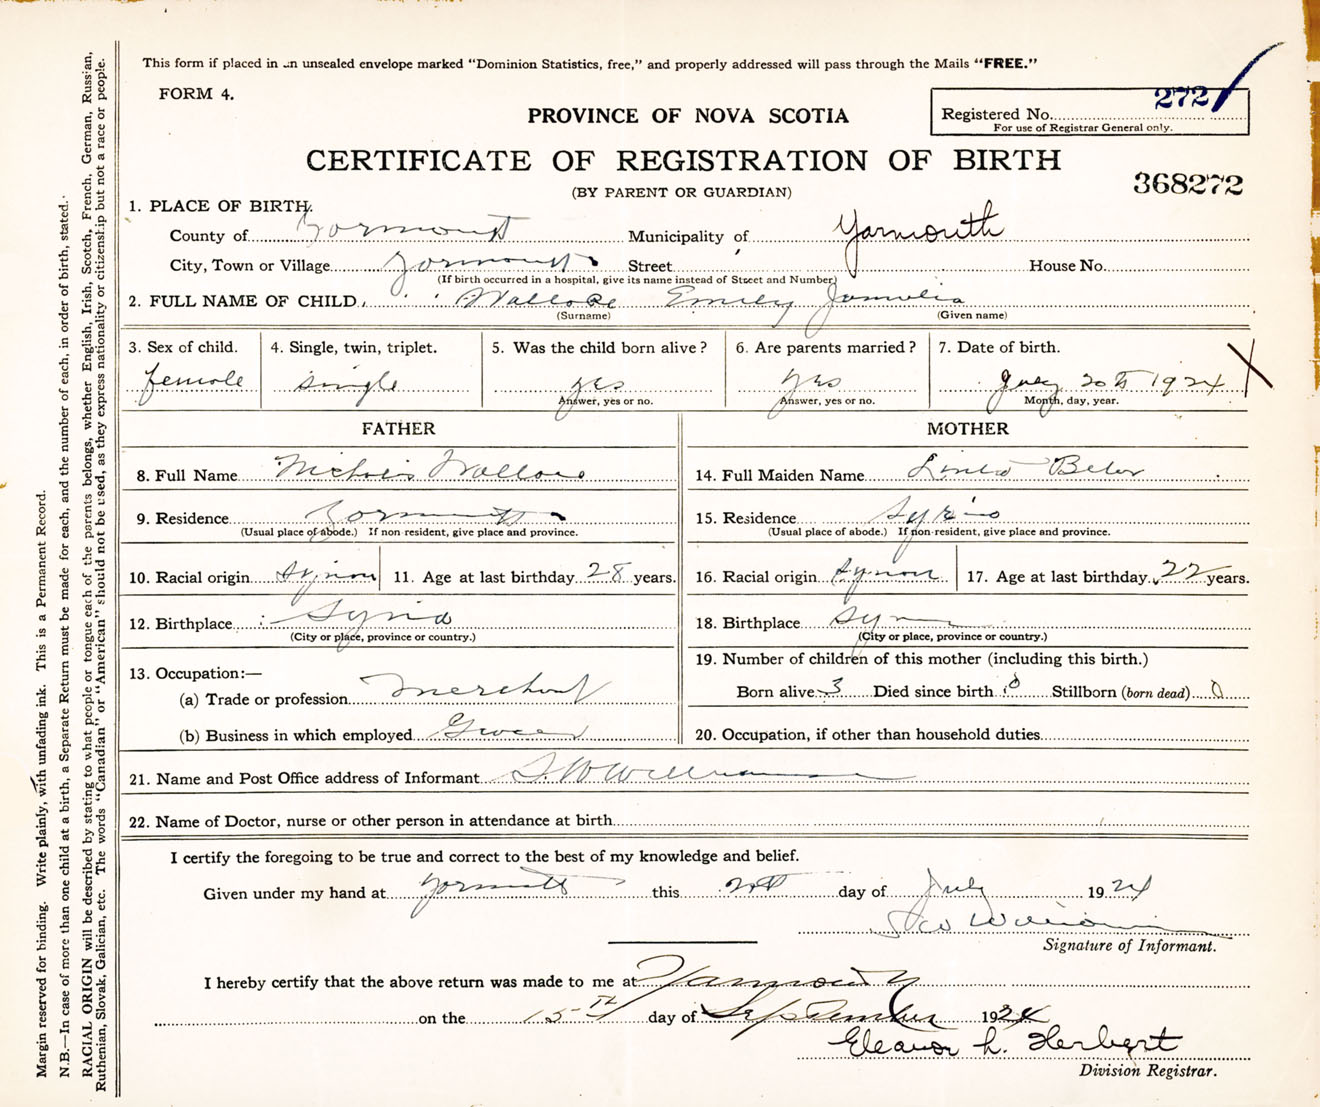 This form if placed in an unsealed envelope marked "Dominion Statistics, free," and properly addressed will pass through the Mails "FREE."
FORM 4.
PROVINCE OF NOVA SCOTIA
Registered No. 272
For use of Registrar General only.
CERTIFICATE OF REGISTRATION OF BIRTH
(BY PARENT OR GUARDIAN)
368272
1. PLACE OF BIRTH.
County of Yarmouth Municipality of Yarmouth
City, Town or Village Yarmouth Street House No.
(If birth occurred in a hospital, give its name instead of Street and Number)
2. FULL NAME OF CHILD Wallace Emily
(Surname) (Given name)
3. Sex of child. 4. Single, twin, triplet. 5. Was the child born alive? 6. Are parents married? 7. Date of birth.
female single yes yes July 20th 1924
Answer, yes or no. Answer, yes or no. Month, day, year.
FATHER MOTHER
8. Full Name Wallace 14. Full Maiden Name
9. Residence Yarmouth 15. Residence Syria
(Usual place of abode.) If non-resident, give place and province. (Usual place of abode.) If non-resident, give place and province.
10. Racial origin Syrian 11. Age at last birthday 28 years. 16. Racial origin Syrian 17. Age at last birthday 22 years.
12. Birthplace Syria 18. Birthplace Syria
(City or place, province or country.) (City or place, province or country.)
13. Occupation:— 19. Number of children of this mother (including this birth.)
(a) Trade or profession Merchant Born alive 3 Died since birth 0 Stillborn (born dead) 0
(b) Business in which employed Grocer 20. Occupation, if other than household duties
21. Name and Post Office address of Informant
22. Name of Doctor, nurse or other person in attendance at birth
I certify the foregoing to be true and correct to the best of my knowledge and belief.
Given under my hand at Yarmouth this day of July 1924
Signature of Informant.
I hereby certify that the above return was made to me at Yarmouth
on the 15TH day of September 1924
Eleanor L. Herbert
Division Registrar.
Margin reserved for binding. Write plainly, with unfading ink. This is a Permanent Record.
N.B.—In case of more than one child at a birth, a Separate Return must be made for each, and the number of each, in order of birth, stated.
RACIAL ORIGIN will be described by stating to what people or tongue each of the parents belongs, whether English, Irish, Scotch, French, German, Russian,
Ruthenian, Slovak, Galician, etc. The words "Canadian" or "American" should not be used, as they express nationality or citizenship but not a race or people.